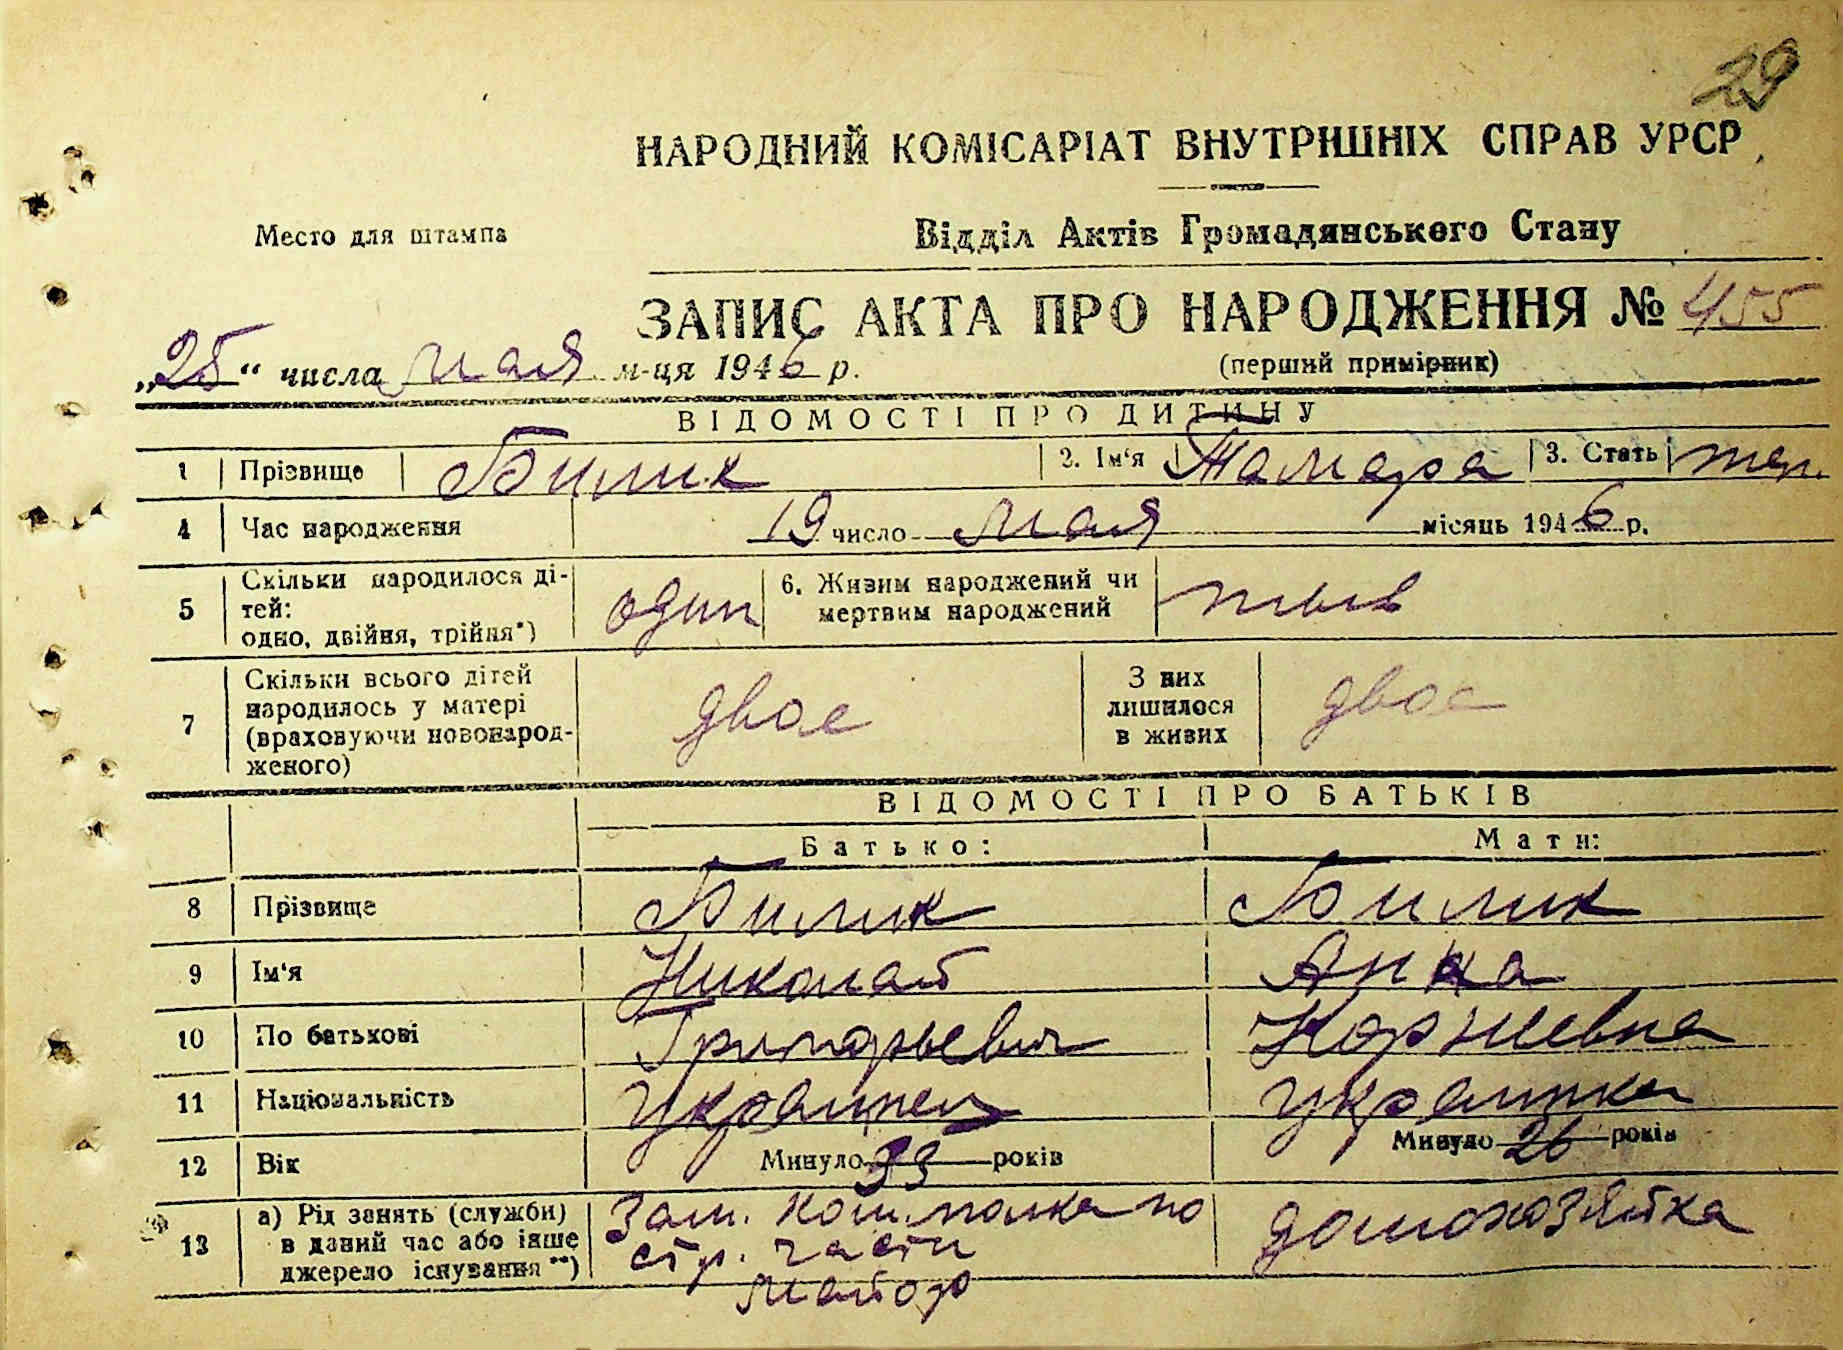 29
НАРОДНИЙ КОМІСАРІАТ ВНУТРІШНІХ СПРАВ УРСР
Место для штампа
Відділ Актів Громадянського Стану
ЗАПИС АКТА ПРО НАРОДЖЕННЯ № 455
„25“ числа мая м-ця 1946 р.
(перший примірник)
ВІДОМОСТІ ПРО ДИТИНУ
1 Прізвище Билик 2. Ім‘я Тамара 3. Стать жен.
4 Час народження 19 число мая місяць 1946 р.
5 Скільки народилося ді-
тей:
одно, двійня, трійня*) один
6. Живим народжений чи
мертвим народжений жив
7 Скільки всього дітей
народилось у матері
(враховуючи новонарод-
женого) двое
З них
лишилося
в живих двое
ВІДОМОСТІ ПРО БАТЬКІВ
Батько: Мати:
8 Прізвище Билик Билик
9 Ім‘я Николай Анна
10 По батькові Григорьевич Корнеевна
11 Національність украинец украинка
12 Вік Минуло 33 років Минуло 26 років
13 а) Рід занять (служби)
в даний час або інше
джерело існування**)
Зам. ком. полка по
стр. части
майор
домохозяйка